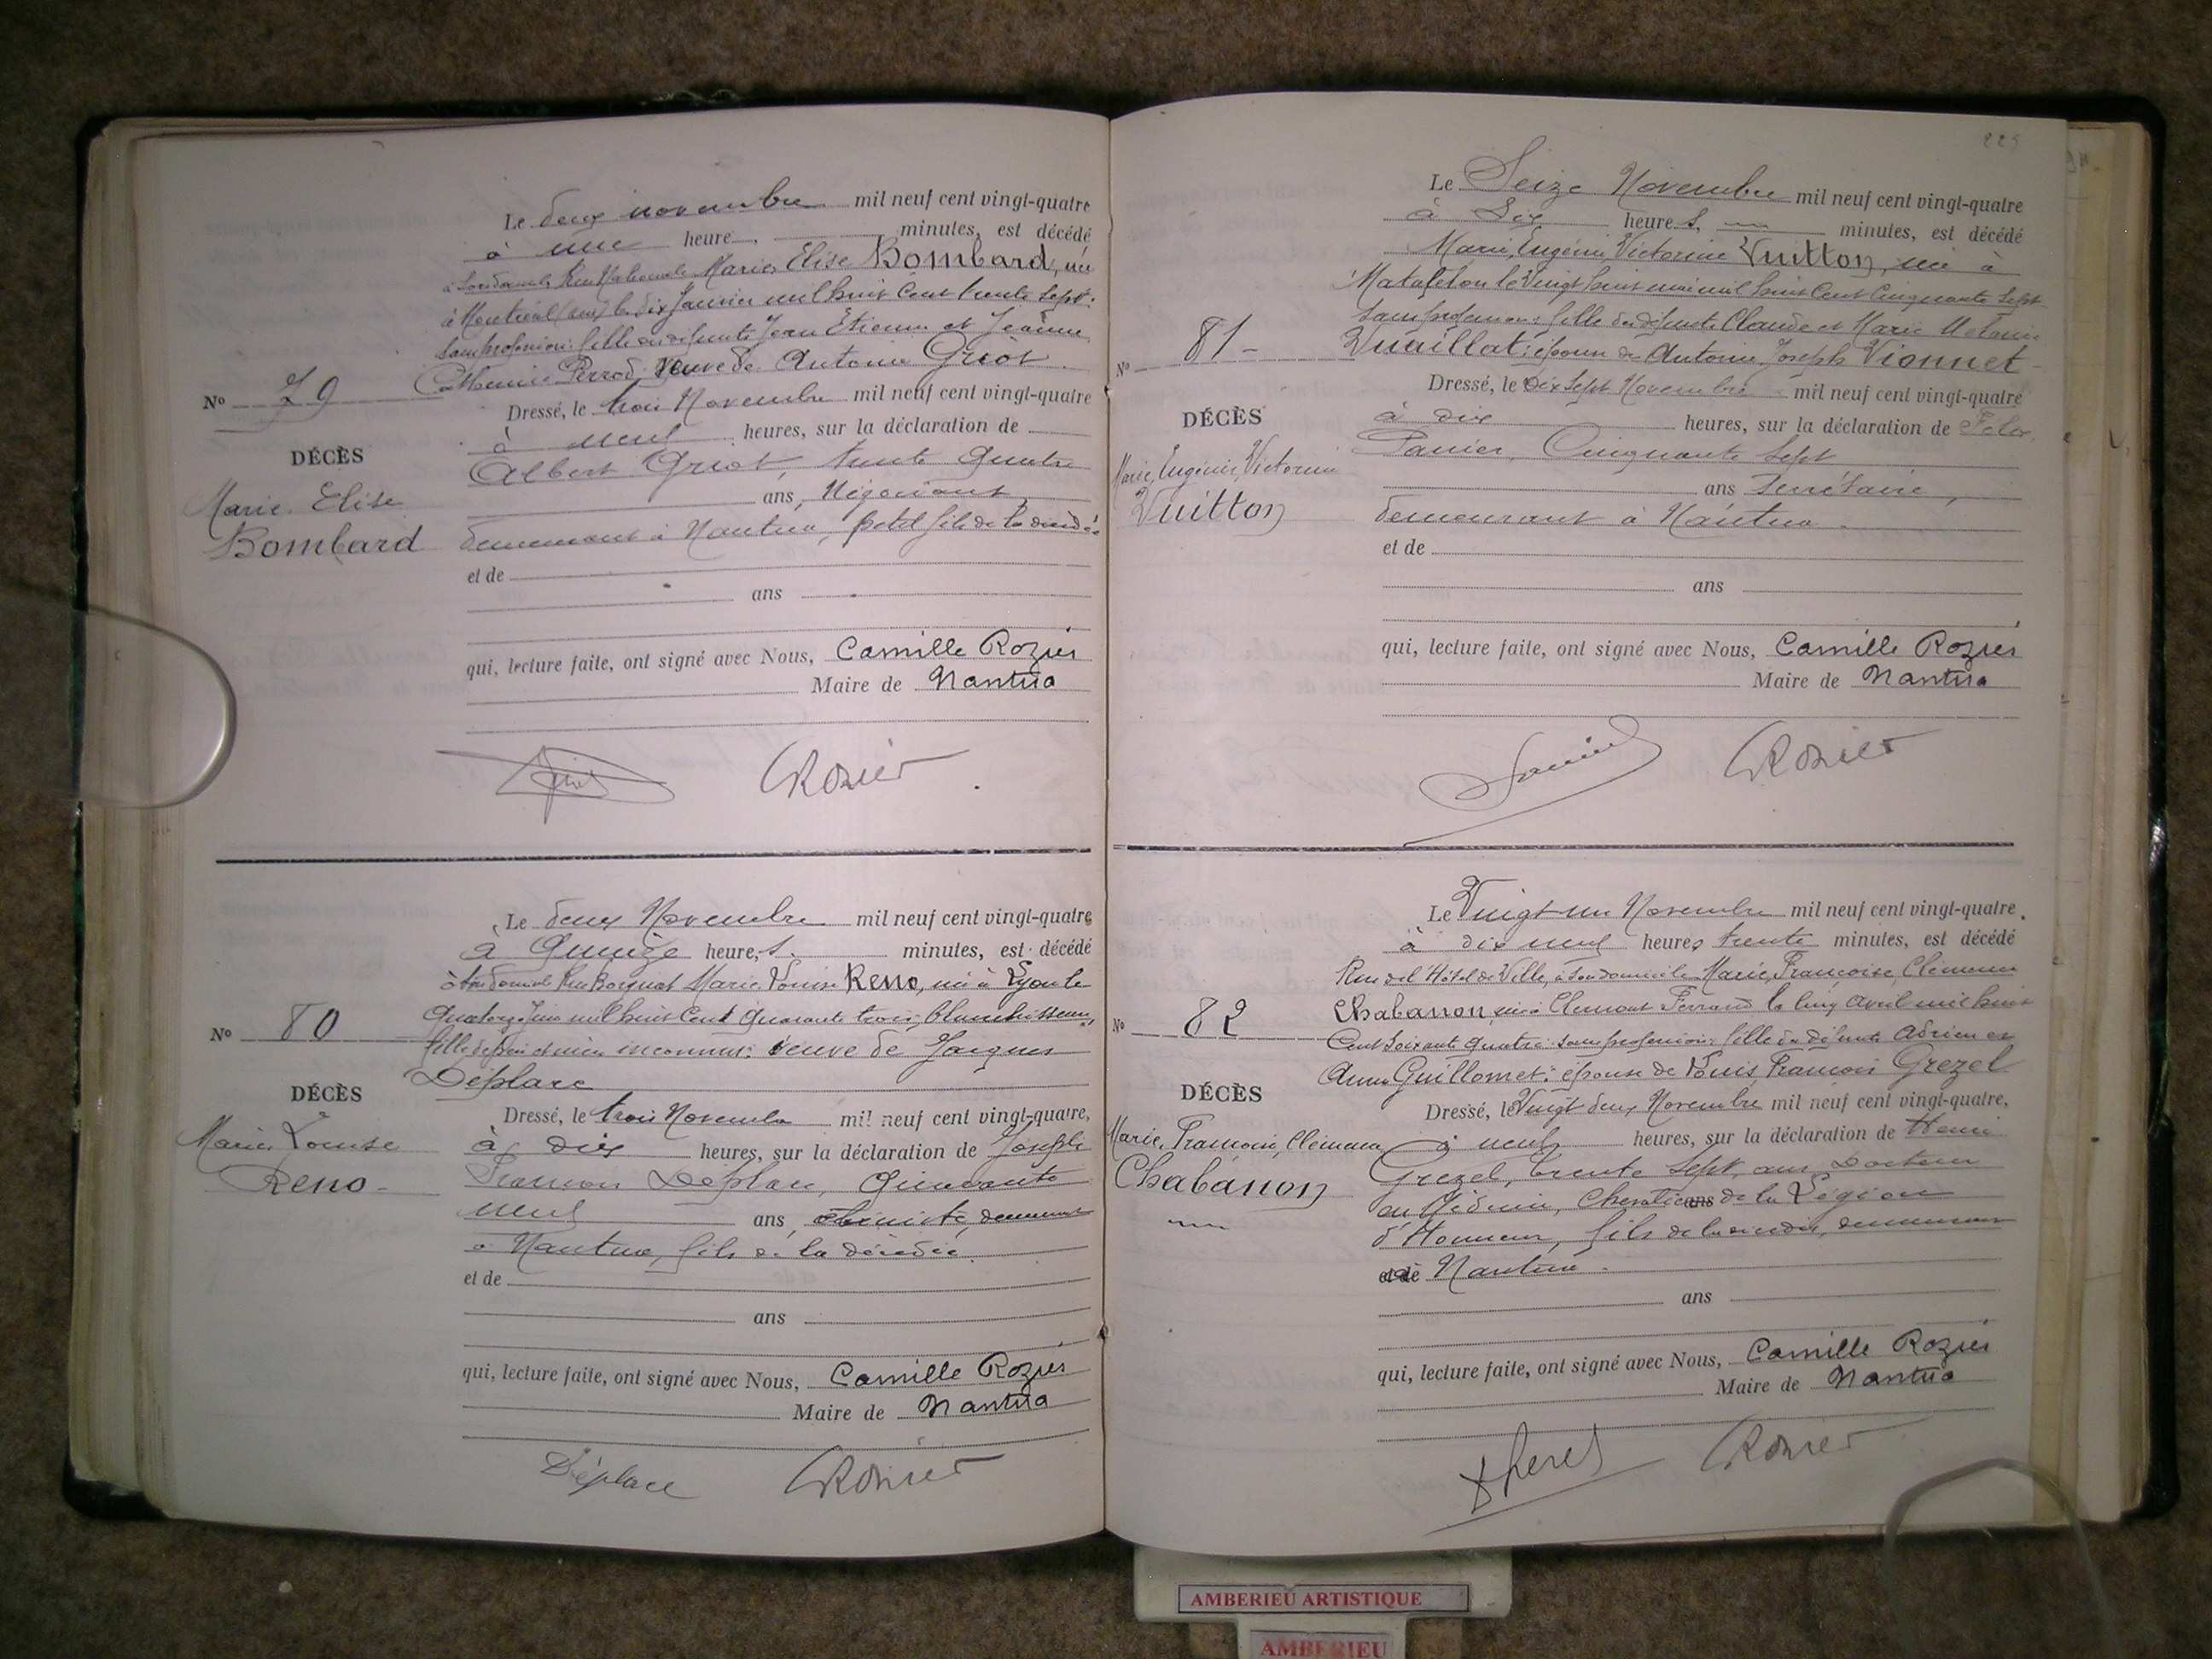 Le deux novembre mil neuf cent vingt-quatre
à une heure, minutes, est décédé
à son domicile Rue Nationale Marie Elise Bombard, née
à Montréal (Ain) le dix Janvier mil huit cent trente sept:
sans profession: fille des défunts Jean Etienne et Jeanne
Catherine Perrod, Veuve de Antoine Griot
Nº 79
Dressé, le trois Novembre mil neuf cent vingt-quatre
à neuf heures, sur la déclaration de
DÉCÈS
Albert Griot, trente quatre
Marie Elise
ans, Négociant,
Bombard
demeurant à Nantua, petit fils de la décédée
et de
ans
qui, lecture faite, ont signé avec Nous, Camille Rozier
Maire de Nantua
CRozier
Le deux Novembre mil neuf cent vingt-quatre
à Quinze heures. minutes, est décédé
à son domicile Rue Borguat Marie Louise Reno, née à Lyon le
quatorze Juin mil huit cent quarante trois, blanchisseuse,
Nº 80
fille de père et mère inconnus: veuve de Jacques
Déplace
DÉCÈS
Dressé, le trois Novembre mil neuf cent vingt-quatre,
Marie Louise
à dix heures, sur la déclaration de Joseph
Reno
François Déplace,
neuf ans, ébéniste, demeurant
à Nantua, fils de la décédée
et de
ans
qui, lecture faite, ont signé avec Nous, Camille Rozier
Maire de Nantua
Déplace CRozier
225
Le Seize Novembre mil neuf cent vingt-quatre
à Six heures, minutes, est décédé
Marie, Eugénie, Victorine Vuitton, née à
Matafelon le Vingt huit mai mil huit cent cinquante sept
sans profession: fille des défunts Claude et Marie
Nº 81
Vuaillat: épouse de Antoine Joseph Vionnet
Dressé, le Dix Sept Novembre mil neuf cent vingt-quatre
DÉCÈS
à dix heures, sur la déclaration de
Marie, Eugénie, Victorine
Panier, Cinquante Sept
Vuitton
ans Secrétaire,
demeurant à Nantua
et de
ans
qui, lecture faite, ont signé avec Nous, Camille Rozier
Maire de Nantua
CRozier
Le Vingt un Novembre mil neuf cent vingt-quatre
à dix neuf heures trente minutes, est décédé
Rue de l'Hôtel de Ville, à son domicile Marie, Françoise, Clémence
Chabanon, née à Clermont Ferrand le cinq avril mil huit
Nº 82
Cent Soixante quatre: sans profession: fille des défunts Adrien et
Anne Guillomet: épouse de Louis François Grezel
DÉCÈS
Dressé, le Vingt deux Novembre mil neuf cent vingt-quatre,
Marie, Françoise, Clémence
à neuf heures, sur la déclaration de Henri
Chabanon
Grezel, trente Sept, ans Docteur
en Médecine, Chevalier ans de la Légion
d'Honneur, fils de la décédée, demeurant
et de à Nantua
ans
qui, lecture faite, ont signé avec Nous, Camille Rozier
Maire de Nantua
CRozier
AMBERIEU ARTISTIQUE
AMBERIEU